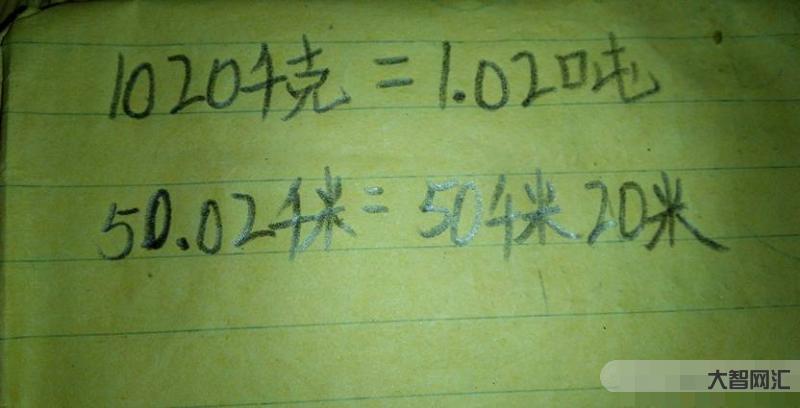 1020千克=1.020吨
50.02千米=50千米20米
大智网汇